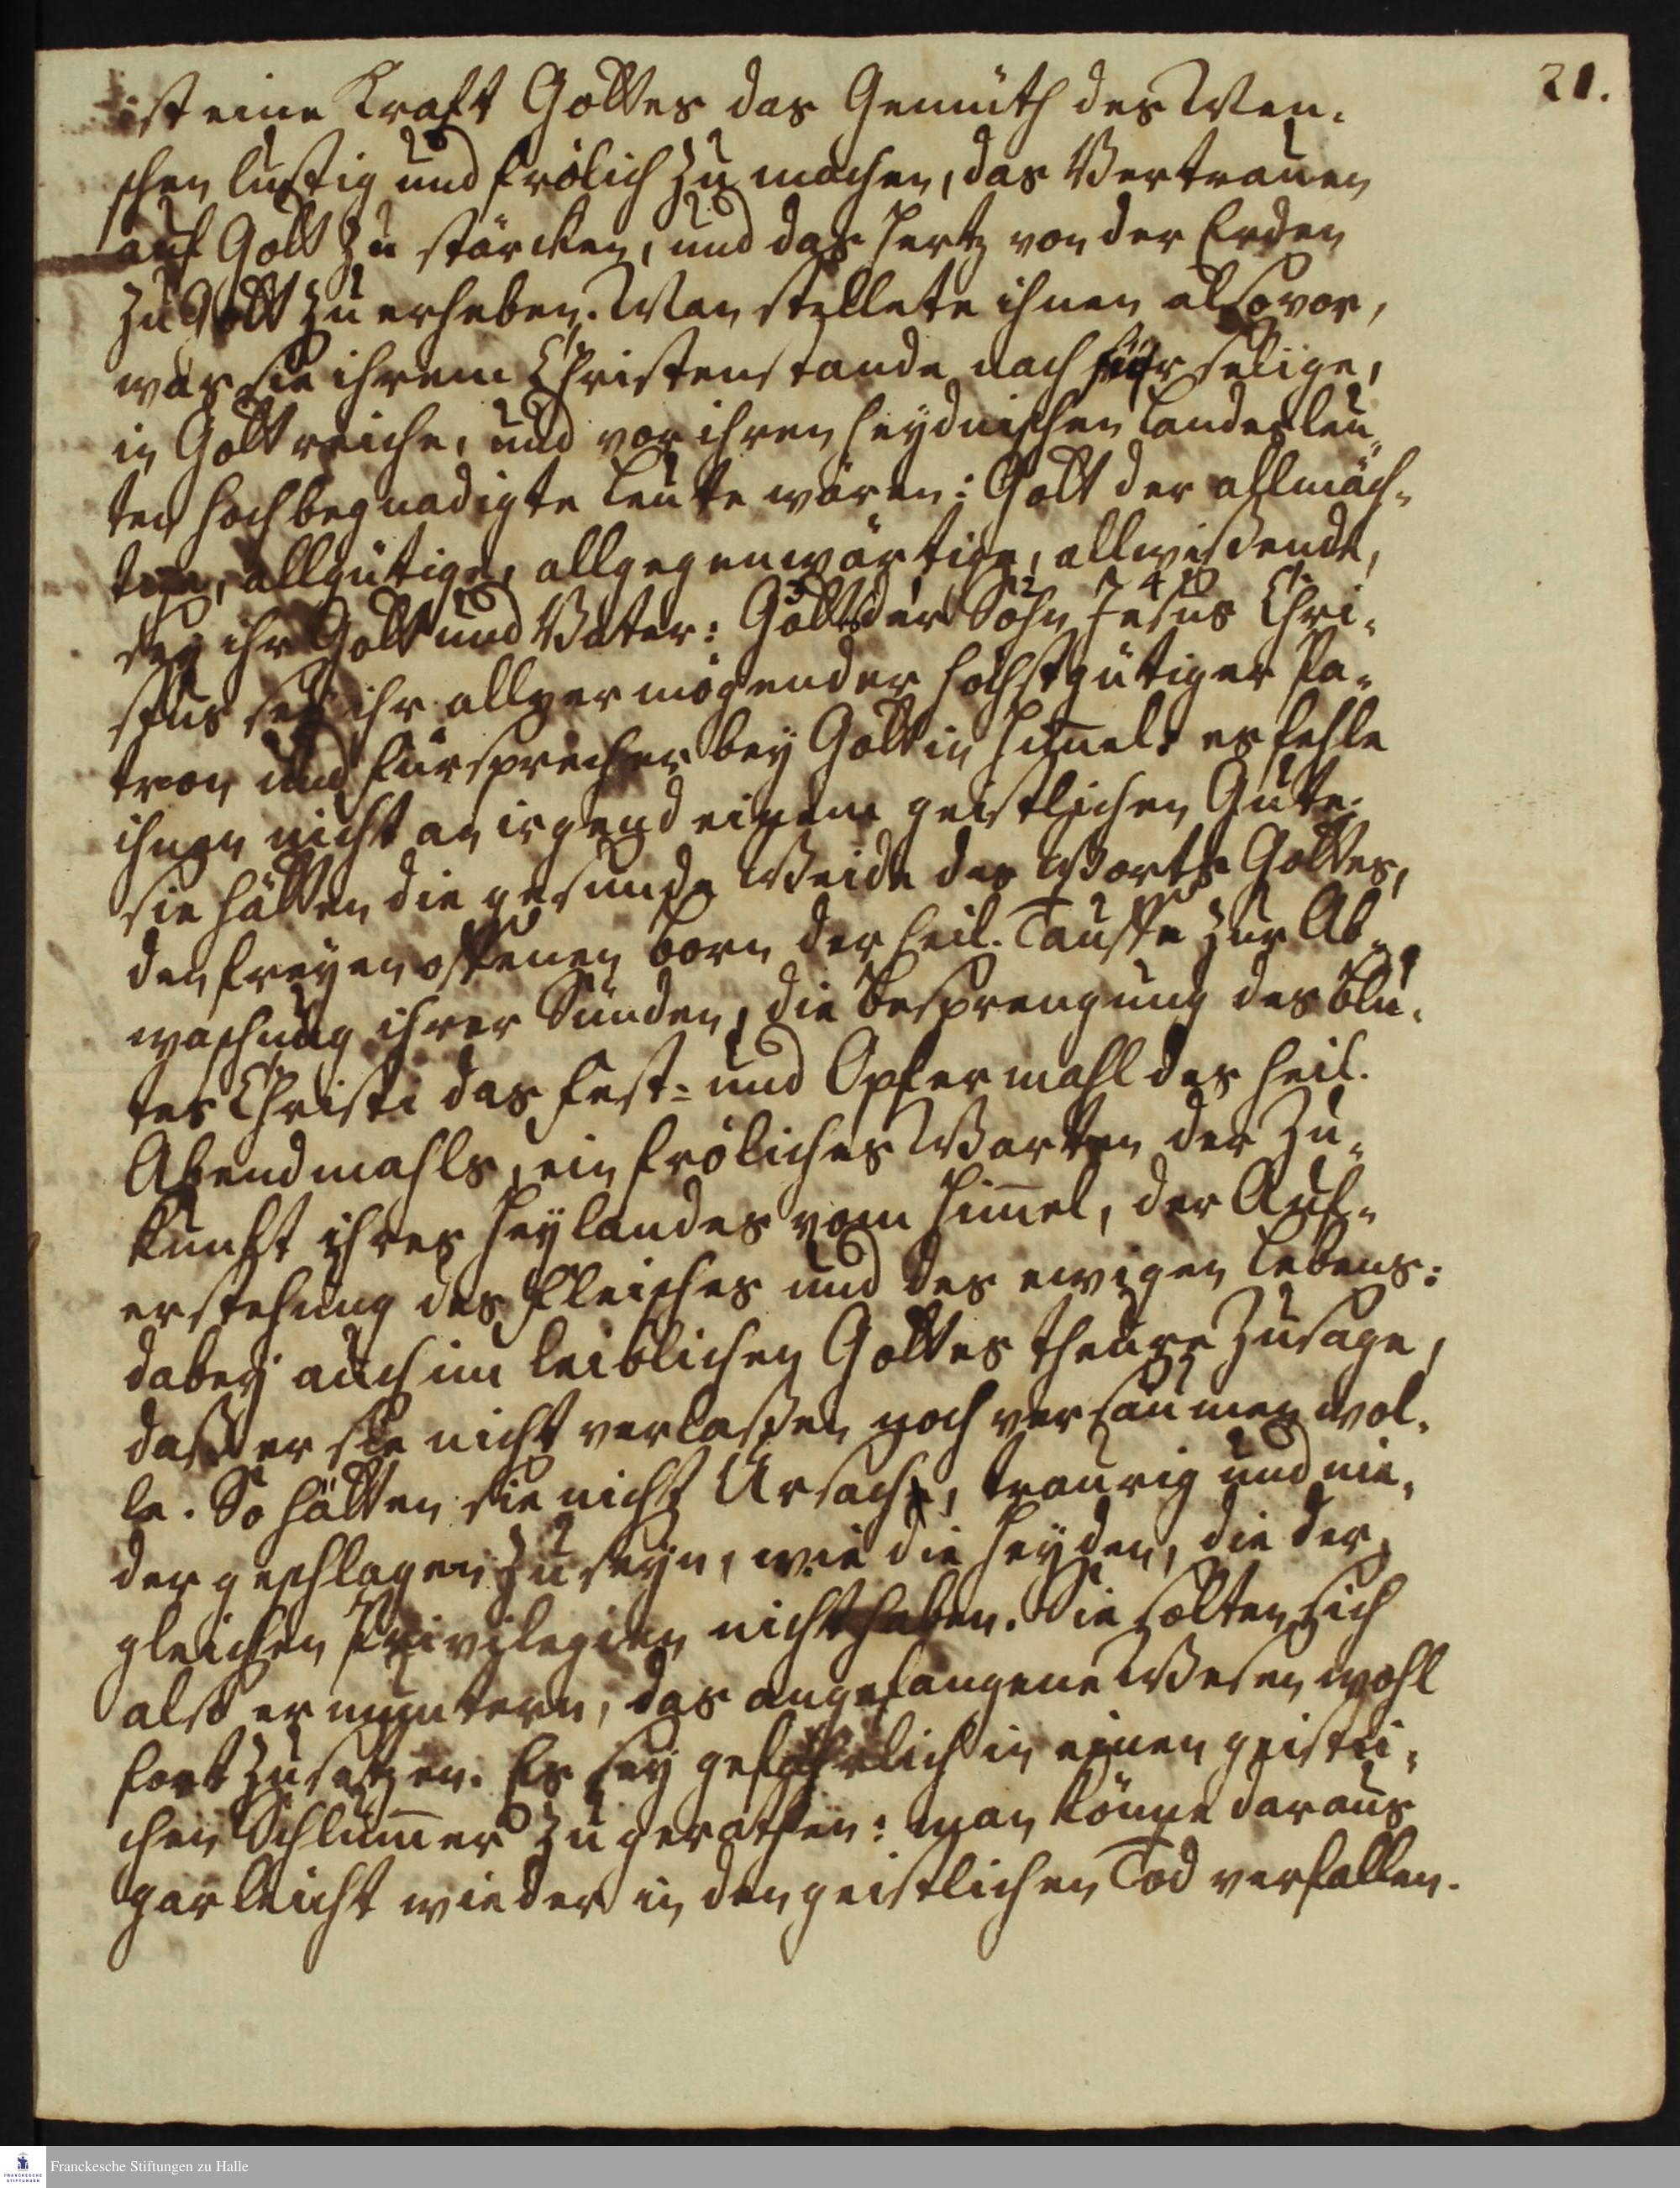 21.
ist eine Krafft Gottes das Gemüth des Men-
schen lustig und frölich zu machen, das Vertrauen
auf Gott zu stärcken, und das Hertz von der Erden
zu Gott zu erheben. Man stellete ihnen also vor,
was sie ihrem Christenstande nach für selige,
in Gott reiche, und vor ihren heydnischen Landesleu-
ten hochbegnadigte Leute wären: Gott der allmäch-
tige, allgütige, allgegenwärtige, allwißende,
sey ihr Gott und Vater: Gottes der Sohn Jesus Chri-
stus sey ihr allvermögender höchstgütiger Pa-
tron und Fürsprecher bey Gott im Himmel: es fehle
ihnen nicht an irgend einem geistlichen Gute:
sie hätten die gesunde Weide des Worts Gottes,
den freyen offenen Born der heil. Tauffe zur Ab-
waschung ihrer Sünden, die Besprengung des Blu-
tes Christi das Fest- und Opfermahl des heil.
Abendmahls, ein fröliches Warten der Zu-
kunfft ihres Heylandes vom Himmel, der Auf-
erstehung des Fleisches und des ewigen Lebens:
dabey auch im leiblichen Gottes theure Zusage,
daß er sie nicht verlaßen noch versäumen wol-
le. So hätten sie nicht Ursach, traurig und nie-
dergeschlagen zu seyn, wie die Heyden, die der-
gleichen Privilegien nicht haben. Sie solten sich
also ermuntern, das angefangene Wesen wohl
fortzusetzen. Es sey gefährlich in einen geistli-
chen Schlummer zu gerathen: man könne daraus
gar leicht wieder in den geistlichen Tod verfallen.
FRANCKESCHE STIFTUNGEN
Franckesche Stiftungen zu Halle